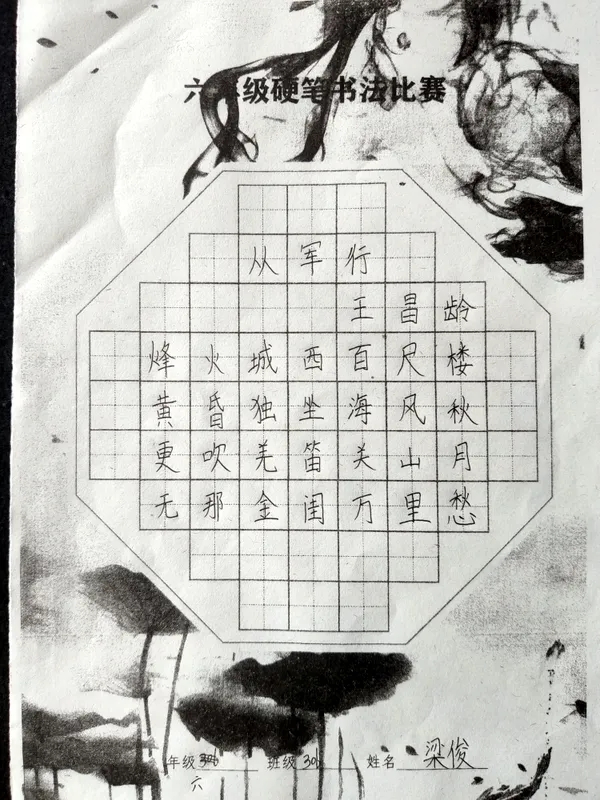 六年级硬笔书法比赛
从军行
王昌龄
烽火城西百尺楼
黄昏独坐海风秋
更吹羌笛关山月
无那金闺万里愁
年级 班级 306 姓名 梁俊
六